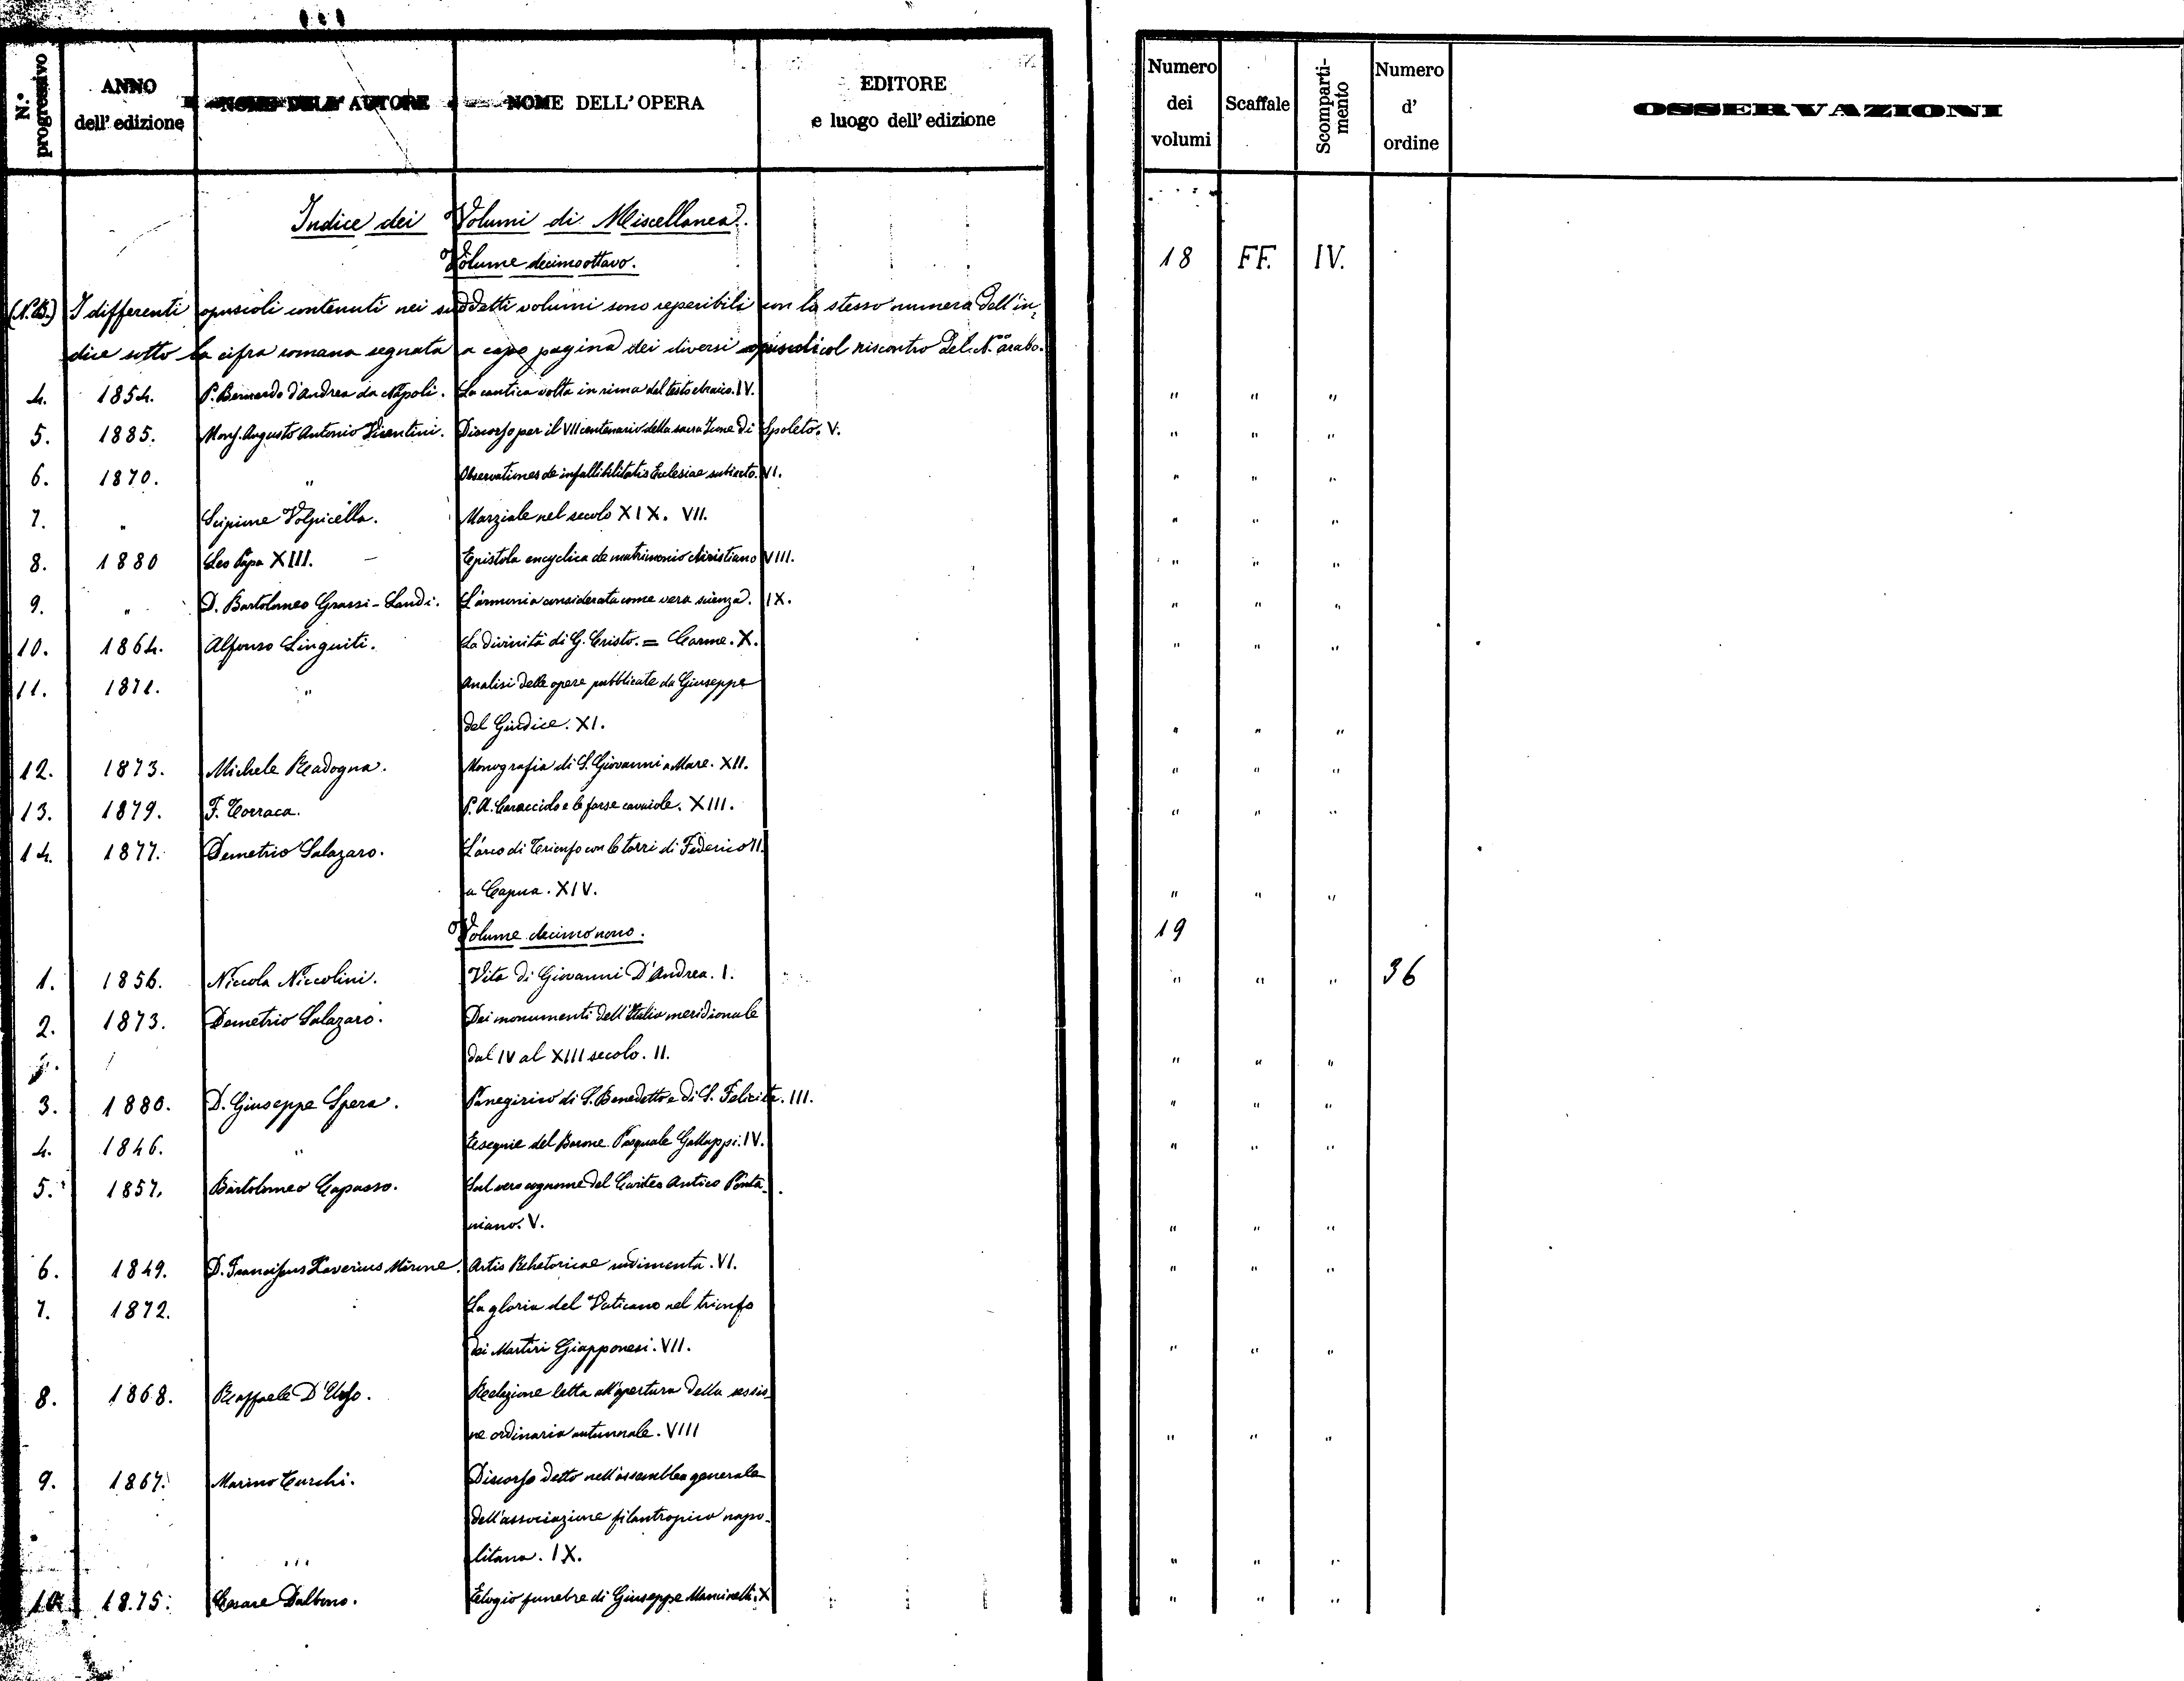 N.° progressivo ANNO dell' edizione NOME DELL' AUTORE NOME DELL' OPERA EDITORE e luogo dell' edizione Numero dei volumi Scaffale Scomparti-mento Numero d' ordine OSSERVAZIONI
Indice dei Volumi di Miscellanea.
Volume decimoottavo. 18 FF. IV.
(N.B.) I differenti opuscoli contenuti nei suddetti volumi sono reperibili con lo stesso numero dell'in-
dice sotto la cifra romana segnata a capo pagina dei diversi opuscoli col riscontro del N.° arabo.
4. 1854. P. Bernardo d'Andrea da Napoli. La cantica volta in rima dal testo ebraico. IV. " " "
5. 1885. Mons. Augusto Antonio Vicentini. Discorso per il VII centenario della sacra Icone di Spoleto. V. " " "
6. 1870. " Observationes de infallibilitatis Ecclesiae subiecto. VI. " " "
7. " Scipione Volpicella. Marziale nel secolo XIX. VII. " " "
8. 1880 Leo Papa XIII. Epistola encyclica de matrimonio christiano VIII. " " "
9. " D. Bartolomeo Grassi-Landi. L'armonia considerata come vera scienza. IX. " " "
10. 1864. Alfonso Linguiti. La divinità di G. Cristo. = Carme. X. " " "
11. 1871. " Analisi delle opere pubblicate da Giuseppe
del Giudice. XI. " " "
12. 1873. Michele Radogna. Monografia di S. Giovanni a Mare. XII. " " "
13. 1879. F. Torraca. P. A. Caracciolo e le farse cavaiole. XIII. " " "
14. 1877. Demetrio Salazaro. L'arco di Trionfo con le torri di Federico II.
a Capua. XIV. " " "
Volume decimonono. 19
1. 1856. Niccola Niccolini. Vita di Giovanni D'Andrea. I. " " " 36
2. 1873. Demetrio Salazaro. Dei monumenti dell'Italia meridionale
dal IV al XIII secolo. II. " " "
3. 1880. D. Giuseppe Spera. Panegirico di S. Benedetto e di S. Felicita. III. " " "
4. 1846. " Esequie del Barone Pasquale Galluppi. IV. " " "
5. 1857. Bartolomeo Capasso. Sul vero cognome del Cariteo Antico Ponta-
niano. V. " " "
6. 1849. D. Franciscus Xaverius Mirone. Artis Rhetoricae rudimenta. VI. " " "
7. 1872. La gloria del Vaticano nel trionfo
dei Martiri Giapponesi. VII. " " "
8. 1868. Raffaele D'Urso. Relazione letta all'apertura della sessio-
ne ordinaria autunnale. VIII " " "
9. 1867. Marino Turchi. Discorso detto nell'assemblea generale
dell'associazione filantropica napo-
litana. IX. " " "
10. 1875. Cesare Dalbono. Elogio funebre di Giuseppe Mancinelli. X " " "